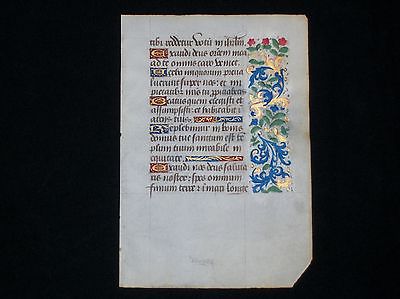 tibi reddetur votū in ihrlm
Exaudi deus oronem mea
ad te omnis caro veniet
Verba iniquorum preua
luerunt super nos : et im
pietatibus nris tu propiciaberis
Beatus quem elegisti et
assumpsisti : inhabitabit i
atriis tuis
Replebimur in bonis
domus tue sanctum est te
plum tuum mirabile in
equitate
Exaudi nos deus saluta
ris noster : spes omnium
finium terre & i mari longe